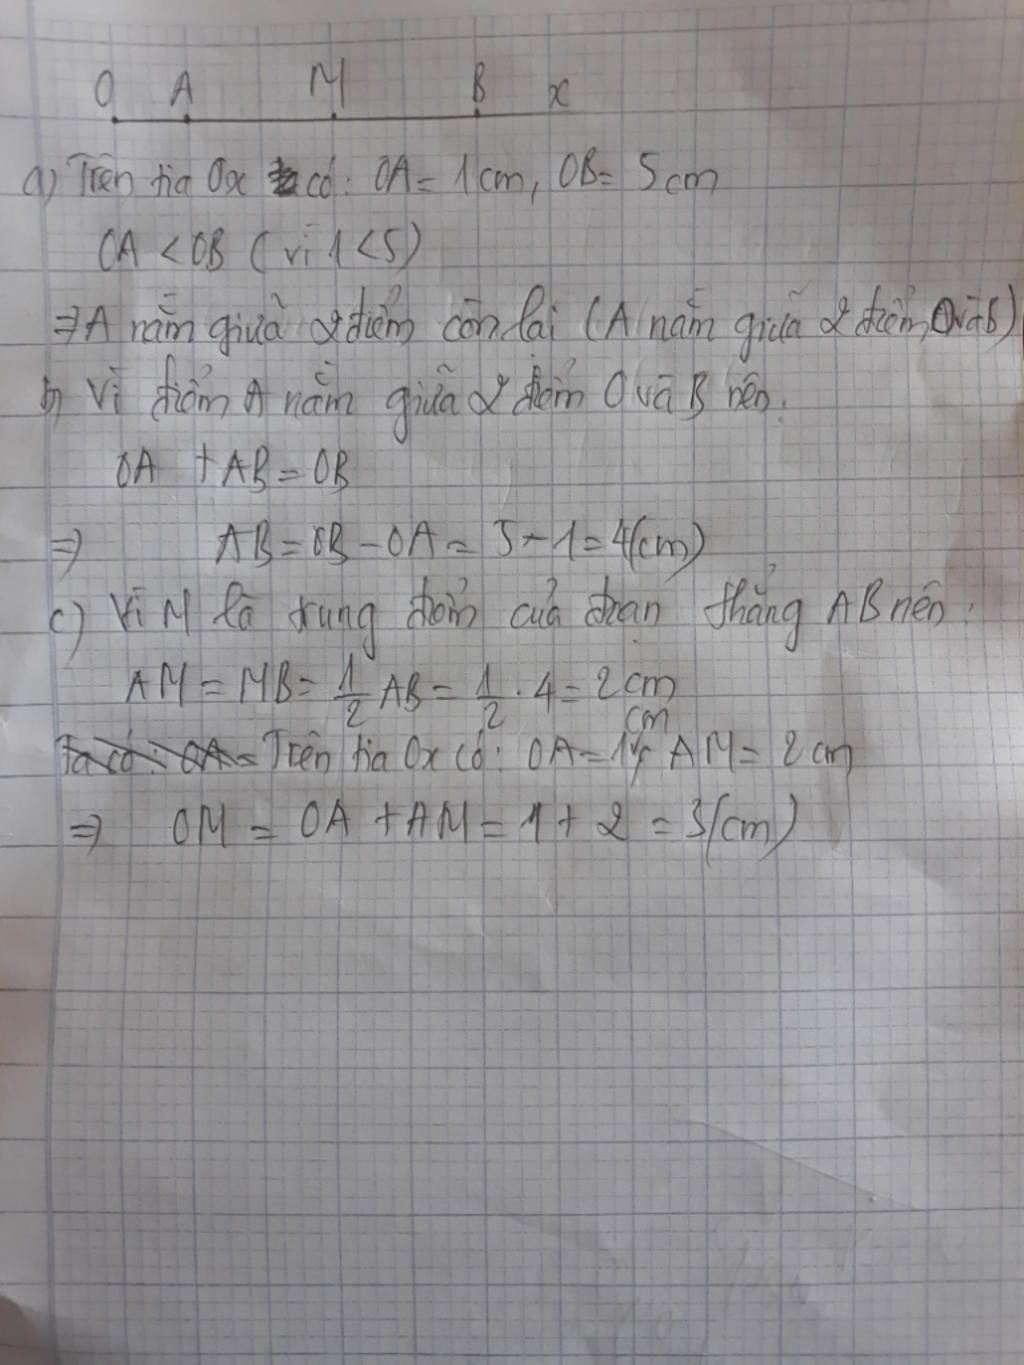 O A M B x
a) Trên tia Ox có: OA = 1cm, OB = 5cm
OA < OB (vì 1 < 5)
⇒ A nằm giữa 2 điểm còn lại (A nằm giữa 2 điểm O và B)
b) Vì điểm A nằm giữa 2 điểm O và B nên:
OA + AB = OB
⇒ AB = OB - OA = 5 - 1 = 4(cm)
c) Vì M là trung điểm của đoạn thẳng AB nên:
AM = MB = 1/2 AB = 1/2 . 4 = 2cm
Ta có: OA = Trên tia Ox có: OA = 1cm, AM = 2cm
⇒ OM = OA + AM = 1 + 2 = 3(cm)